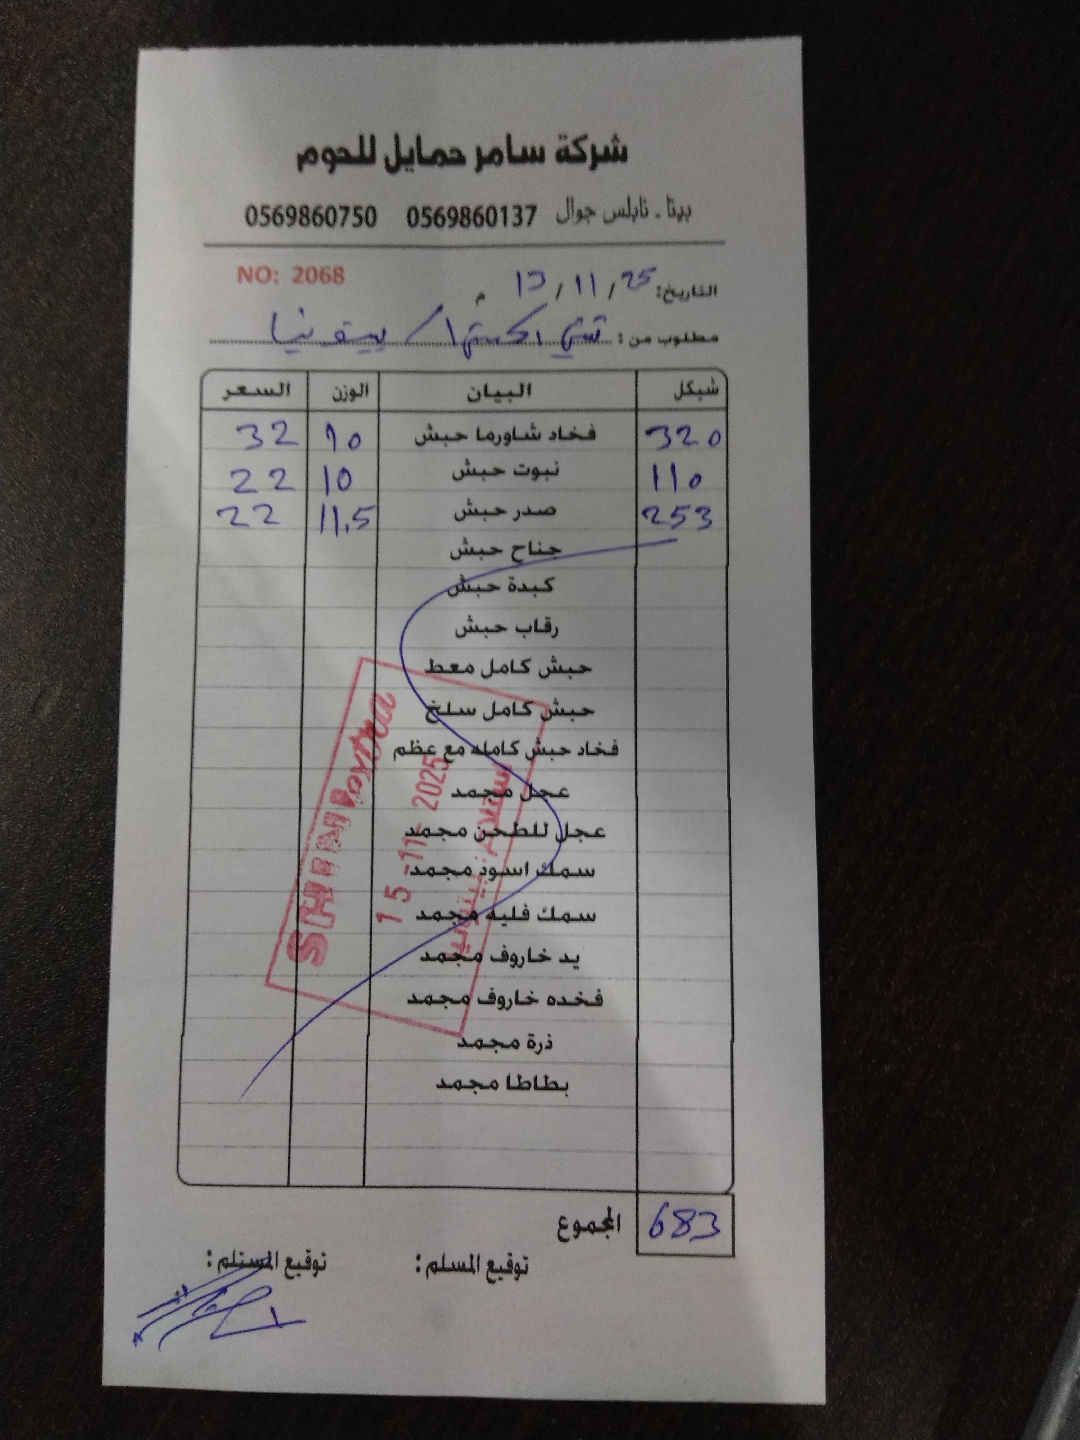 شركة سامر حمايل للحوم
بيتا - نابلس جوال 0569860137 0569860750
NO: 2068
التاريخ: 25 / 11 / 13 م
مطلوب من :
شيكل البيان الوزن السعر
320 فخاد شاورما حبش 10 32
110 نبوت حبش 10 22
253 صدر حبش 11.5 22
جناح حبش
كبدة حبش
رقاب حبش
حبش كامل معط
حبش كامل سلخ
فخاد حبش كامله مع عظم
عجل مجمد
عجل للطحن مجمد
سمك اسود مجمد
سمك فليه مجمد
يد خاروف مجمد
فخده خاروف مجمد
ذرة مجمد
بطاطا مجمد
SHINI extra
15 -11- 2025
المجموع 683
توقيع المسلم : توقيع المستلم :